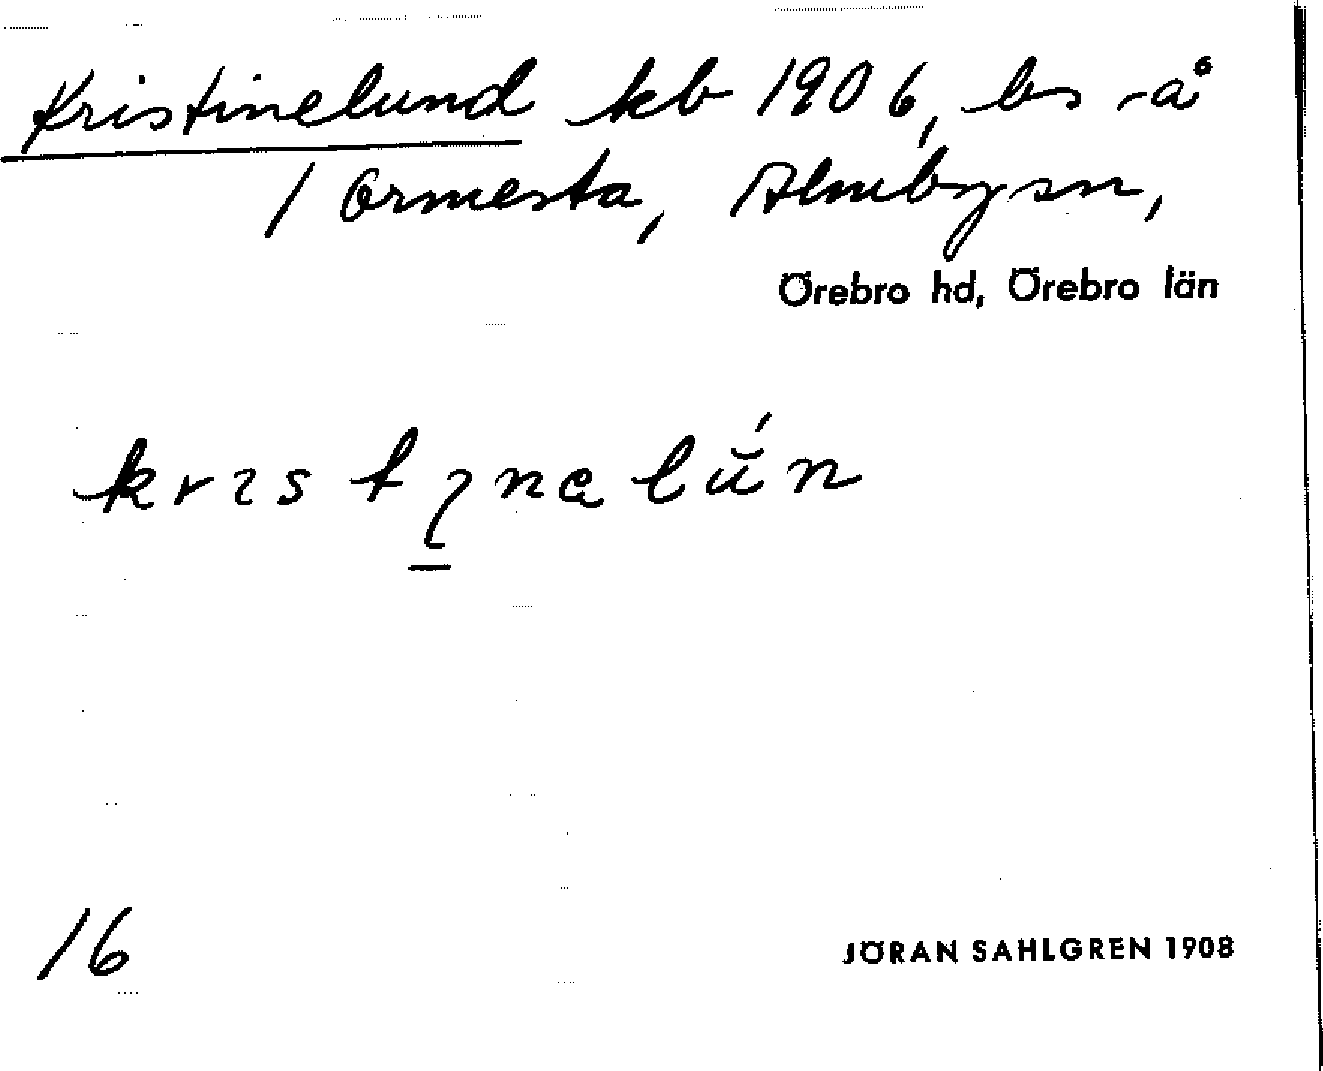 Kristinelund kb 1906, bs -å
/ Ormesta, Almby sn,
Örebro hd, Örebro län
16
JÖRAN SAHLGREN 1908